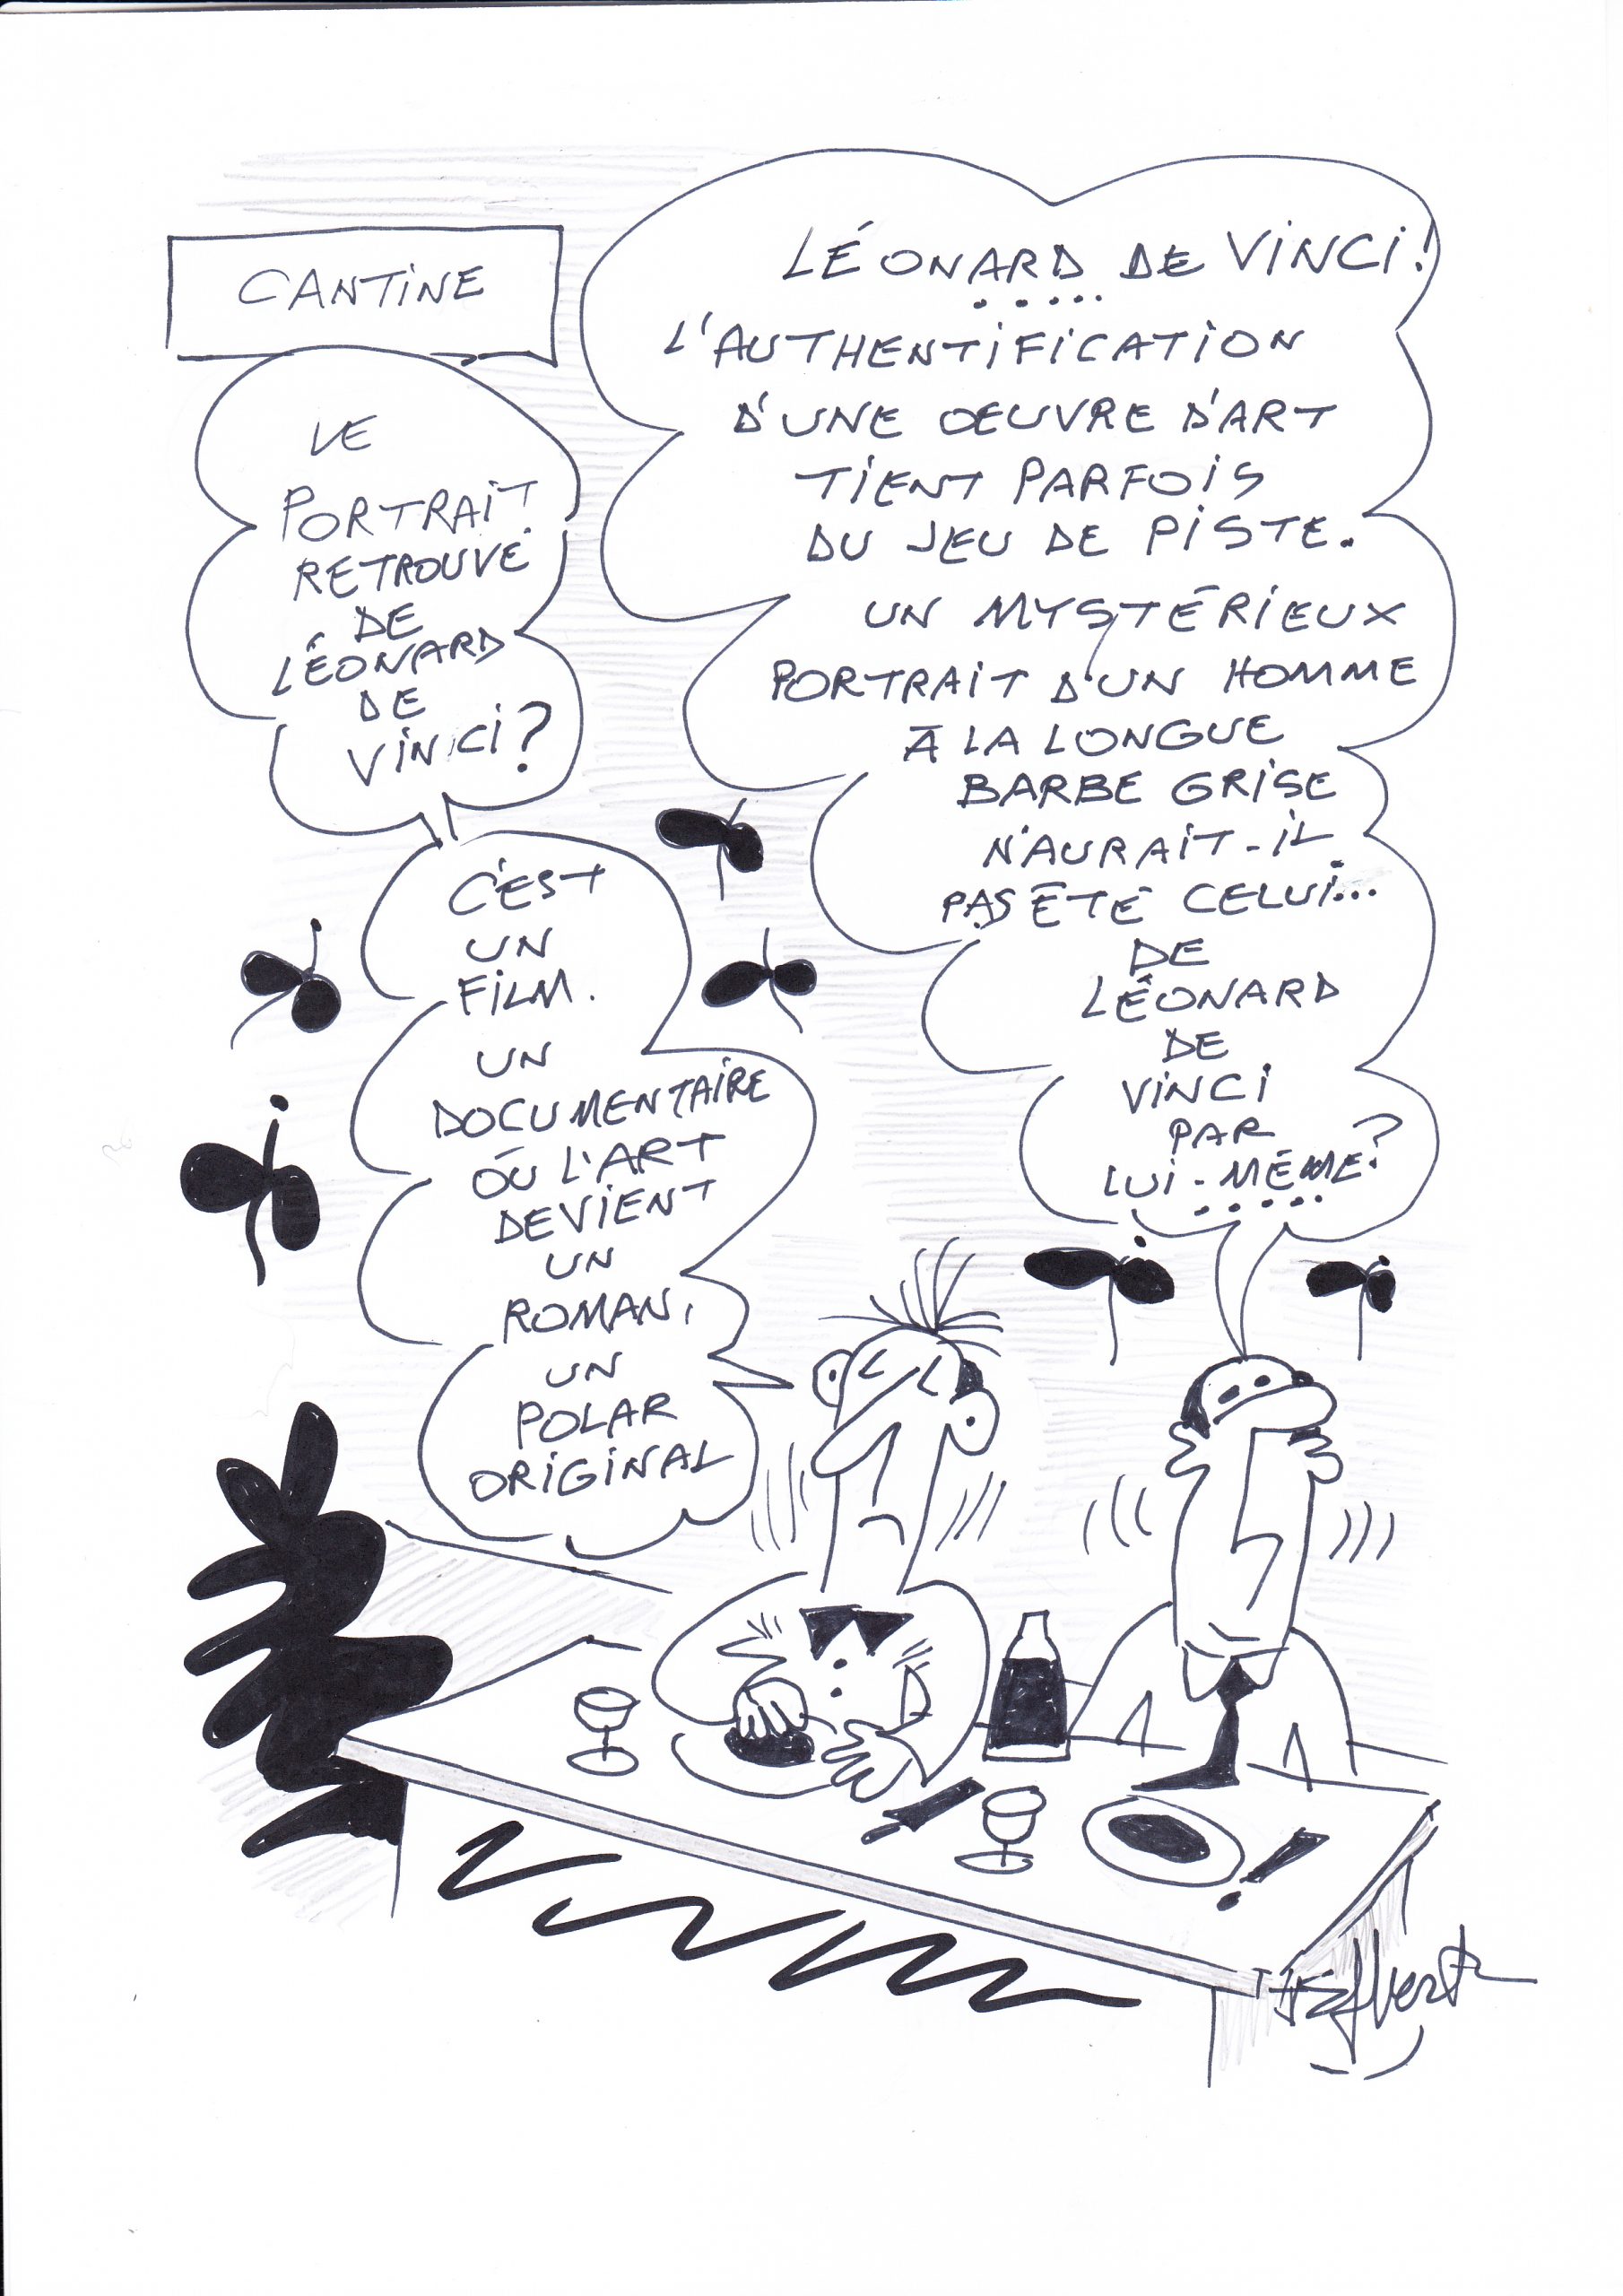 CANTINE
LÉONARD DE VINCI!
L'AUTHENTIFICATION
D'UNE OEUVRE D'ART
TIENT PARFOIS
DU JEU DE PISTE.
UN MYSTÉRIEUX
PORTRAIT D'UN HOMME
À LA LONGUE
BARBE GRISE
N'AURAIT-IL
PAS ÉTÉ CELUI...
DE
LÉONARD
DE
VINCI
PAR
LUI-MÊME?
LE
PORTRAIT
RETROUVÉ
DE
LÉONARD
DE
VINCI?
C'EST
UN
FILM.
UN
DOCUMENTAIRE
OÙ L'ART
DEVIENT
UN
ROMAN,
UN
POLAR
ORIGINAL